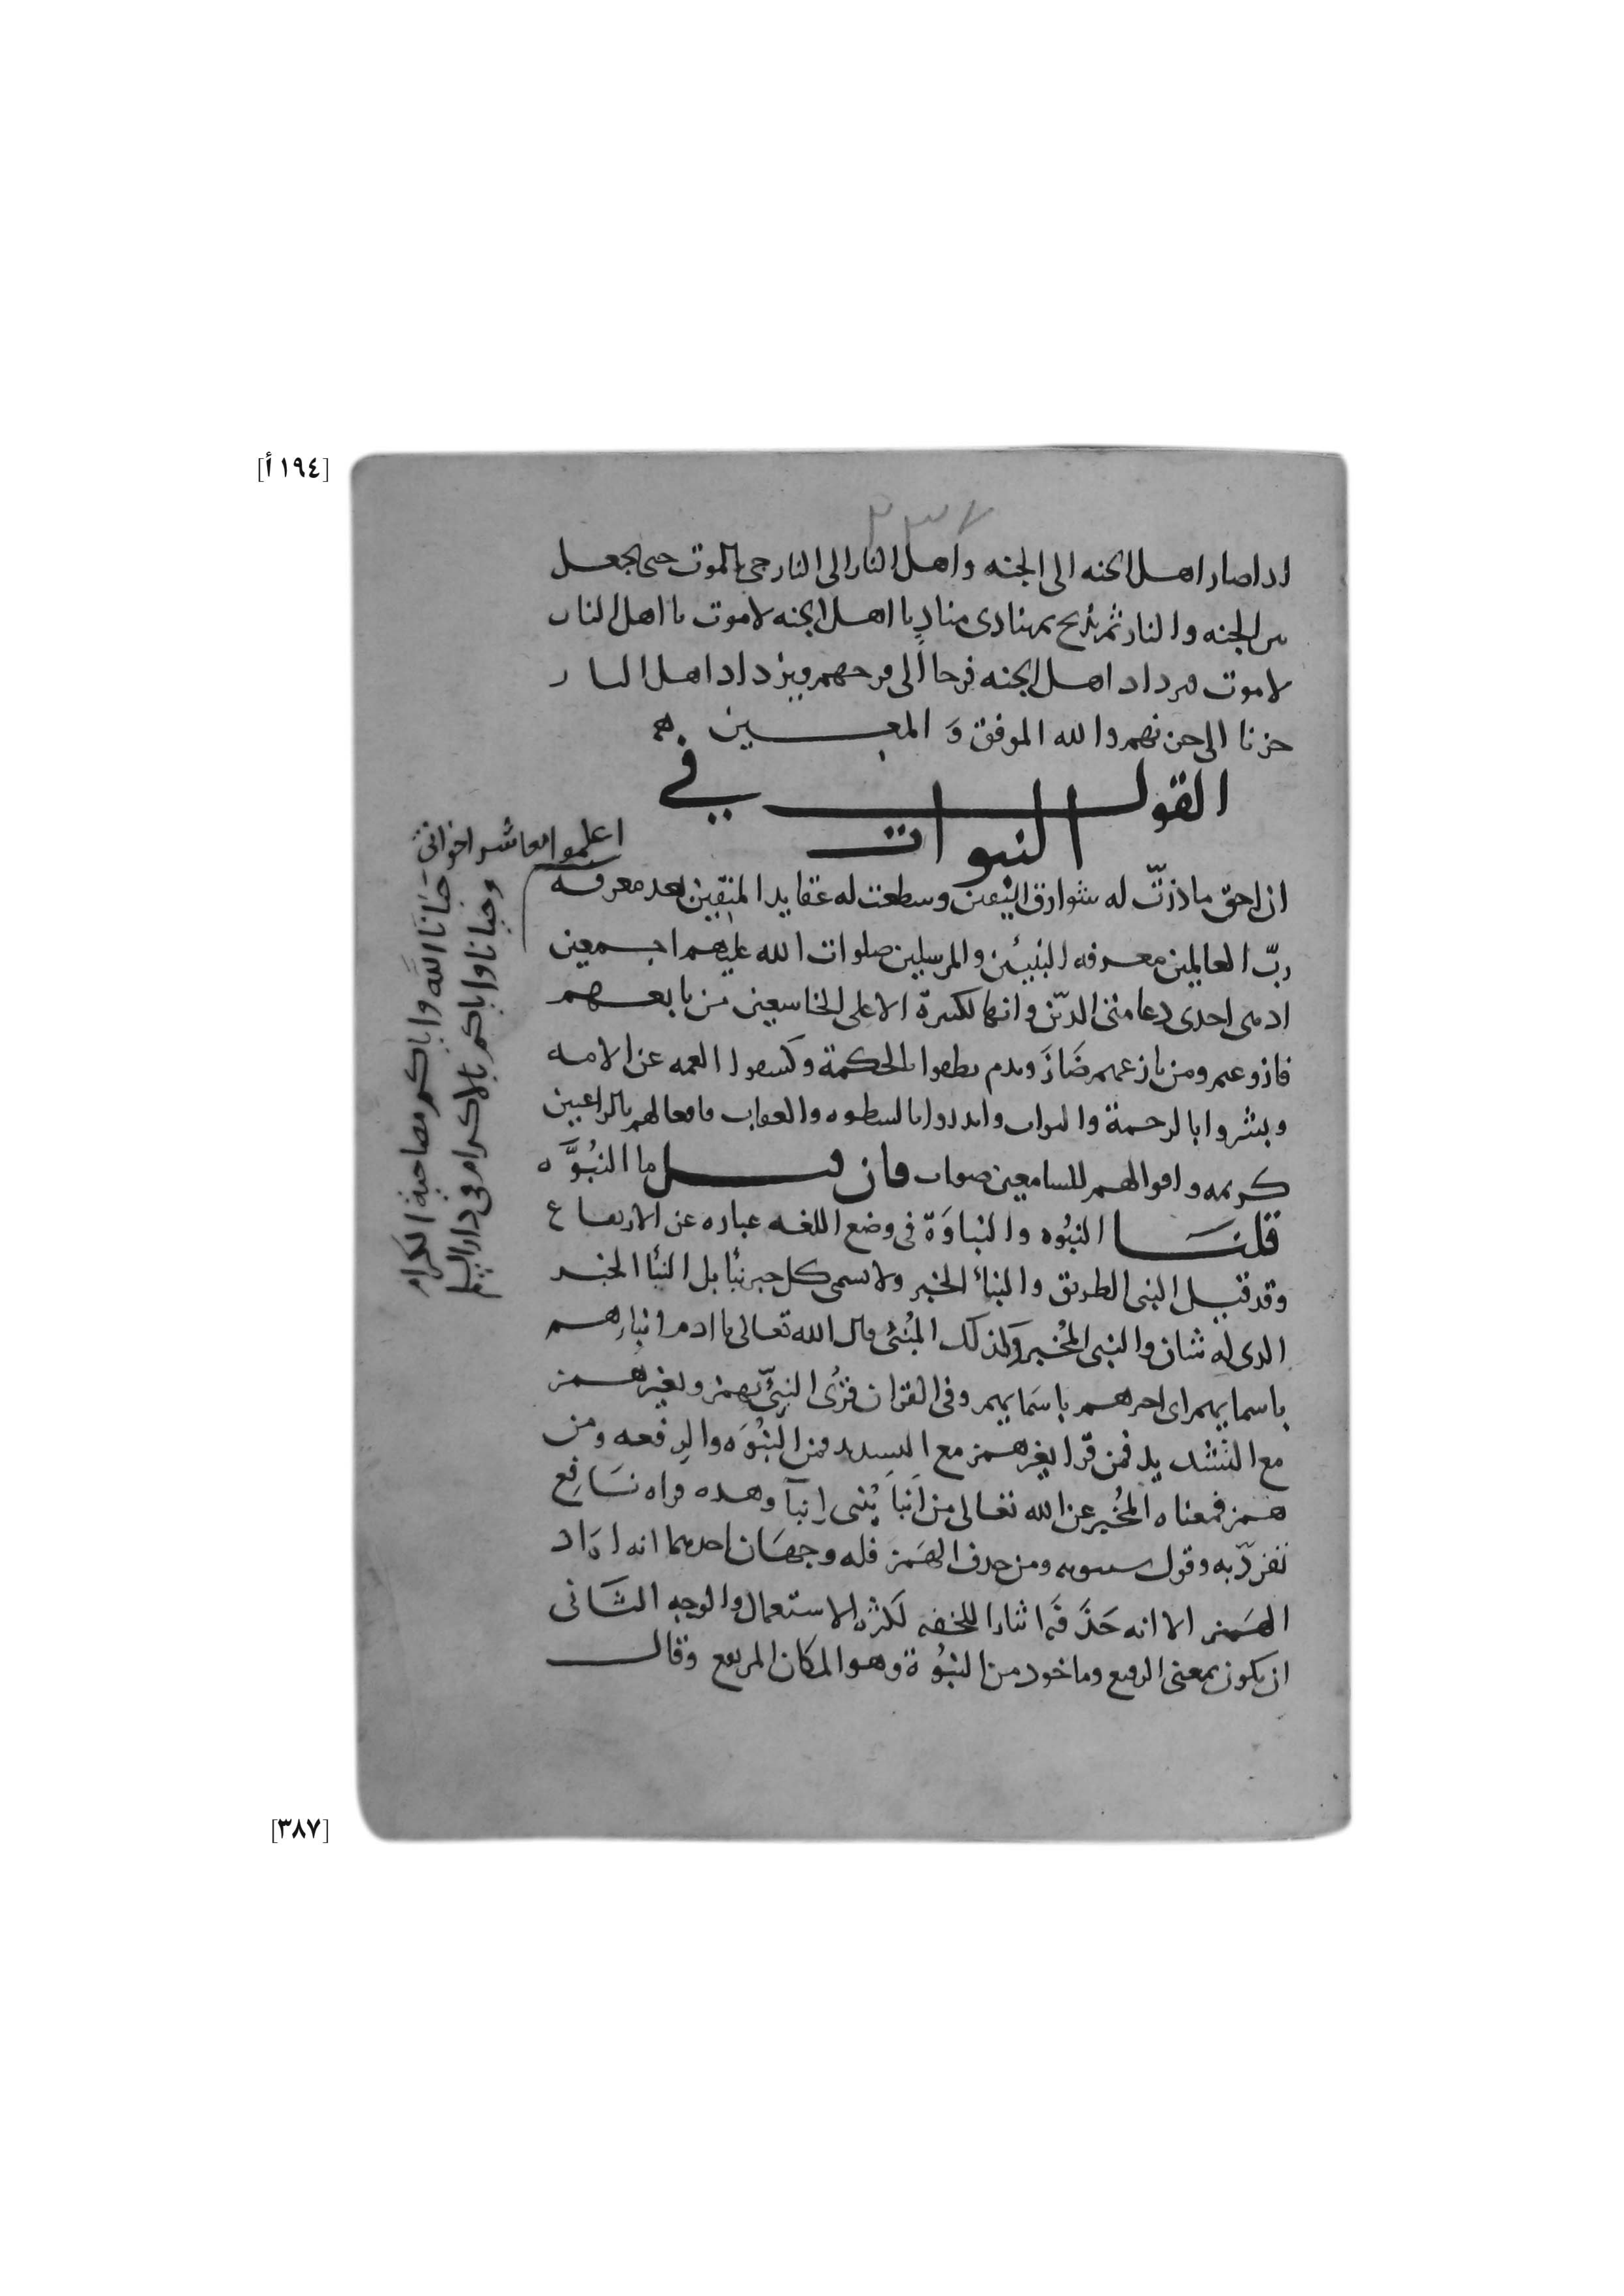 [١٩٤ أ]
٢٣٧
اذا صار اهل الجنه الى الجنه واهل النار الى النار جي بالموت حتى يجعل
بين الجنه والنار ثم يذبح ثم ينادى منادٍ يا اهل الجنه لا موت يا اهل النار
لا موت فيزداد اهل الجنه فرحا الى فرحهم ويزداد اهل النار
حزنا الى حزنهم والله الموفق وَ المعين
القول في
النبوات
اعلموا معاشر اخواني
حبانا الله واياكم مصاحبة الكرام
وحيانا واياكم بالاكرام في دار السلام
ان احق ما ذرّت له شوارق اليقين وسطعت له عقايد المتقين بعد معرفه
ربّ العالمين معرفه النبيّين والمرسلين صلوات الله عليهم اجمعين
اذ هي احدى دعامتي الدّين وانها لكبيرة الا على الخاشعين من تابعهم
فاز وعمر ومن نازعهم ضَارَ وندم نطقوا بالحكمة وكشفوا الغمه عن الامه
وبشروا بالرحمة والثواب وانذروا بالسطوه والعقاب فافعالهم للراغبين
كريمه واقوالهم للسامعين صواب فان قيل ما النبُوَّه
قلنَا النبُوه والنباوَة في وضع اللغه عباره عن الارتفاع
وقد قيل النبي الطريق والنبأ الخبر ولا يسمى كل خبر نبأ بل النبأ الخبر
الذي له شان والنبي المُخبر وكذلك المُنبئ قال الله تعالى يا ادم انبئهم
باسمايهم اي اخبرهم باسمَايهم وفي القران قرئ النبئ بهمز وبغير همز
مع التشديد فمن قرا بغير همز مع التشديد فمن النبُوَه والرفعه ومن
همز فمعناه المُخبر عن الله تعالى من اَنبَأَ يُنبى اِنبآ وهذه قراه نَافِع
تفرّد به وقول سيبويه ومن حذف الهَمز فله وجهَان احدهما انه ارَاد
الهَمز الا انه حَذَفَه اثارا للخفه لكثره الاستعمال والوجه الثَانى
ان يكون بمعنى الرفيع وماخوذ من النبُوة وهو المكان المرتفع وقال
[٣٨٧]